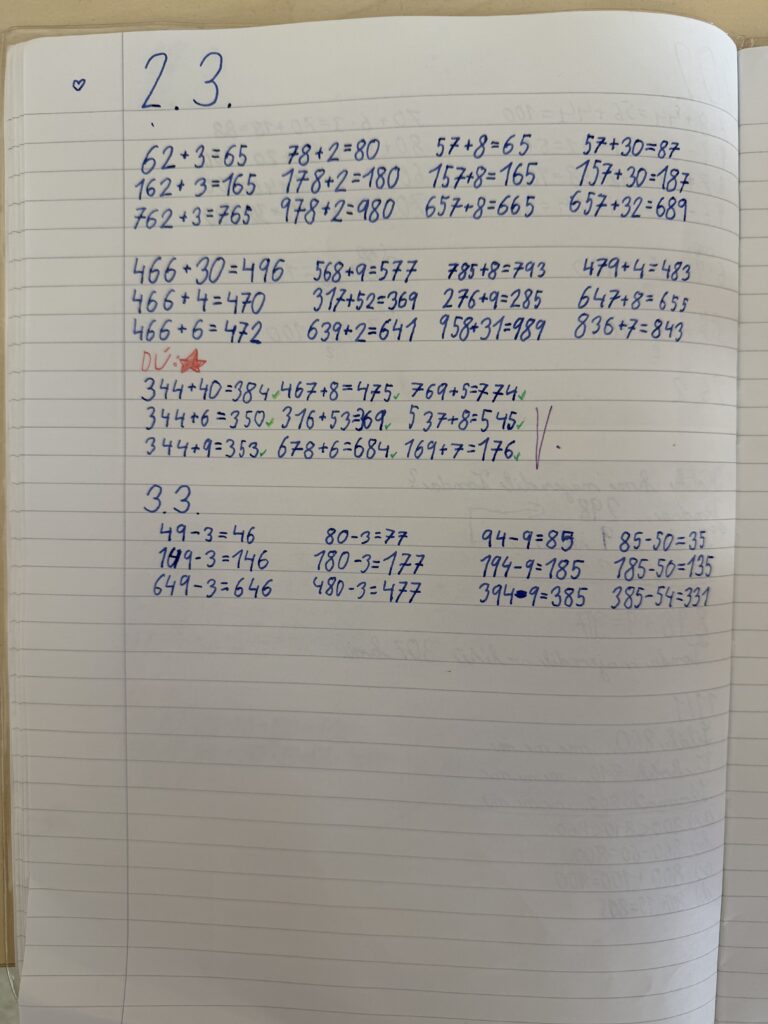 2.3.
62+3=65 78+2=80 57+8=65 57+30=87
162+3=165 178+2=180 157+8=165 157+30=187
762+3=765 978+2=980 657+8=665 657+32=689
466+30=496 568+9=577 785+8=793 479+4=483
466+4=470 317+52=369 276+9=285 647+8=655
466+6=472 639+2=641 958+31=989 836+7=843
DÚ:
344+40=384 467+8=475 769+5=774
344+6=350 316+53=369 537+8=545
344+9=353 678+6=684 169+7=176
3.3.
49-3=46 80-3=77 94-9=85 85-50=35
149-3=146 180-3=177 194-9=185 185-50=135
649-3=646 480-3=477 394-9=385 385-54=331